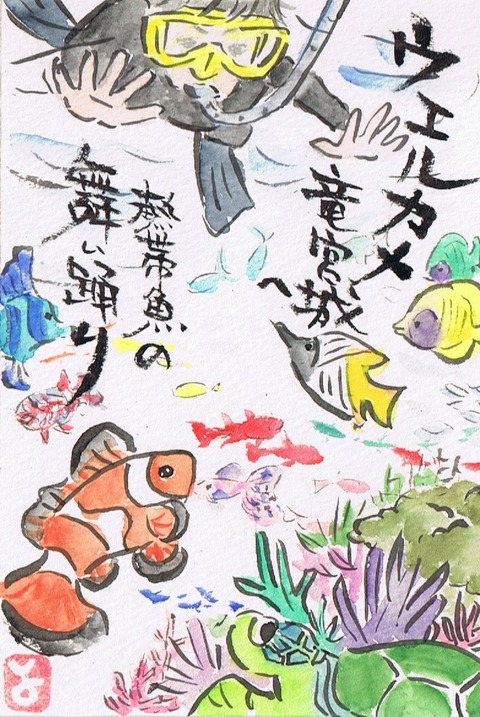 ウェルカメ
竜宮城へ
熱帯魚の
舞い踊り